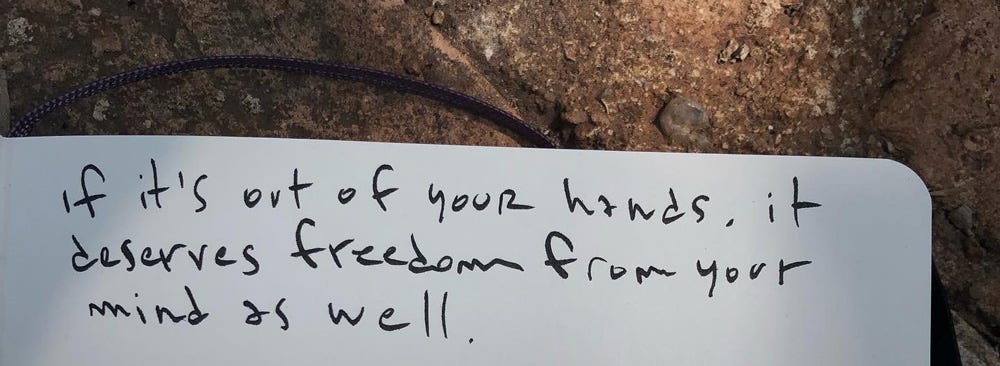 if it's out of your hands, it
deserves freedom from your
mind as well.